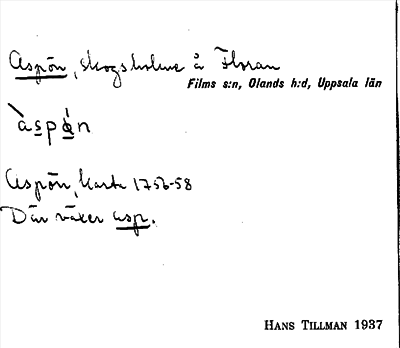 Aspön, skogsholme å Floran
Films s:n, Olands h:d, Uppsala län
àspǿn
Aspön, Karta 1756-58
Där växer asp.
HANS TILLMAN 1937